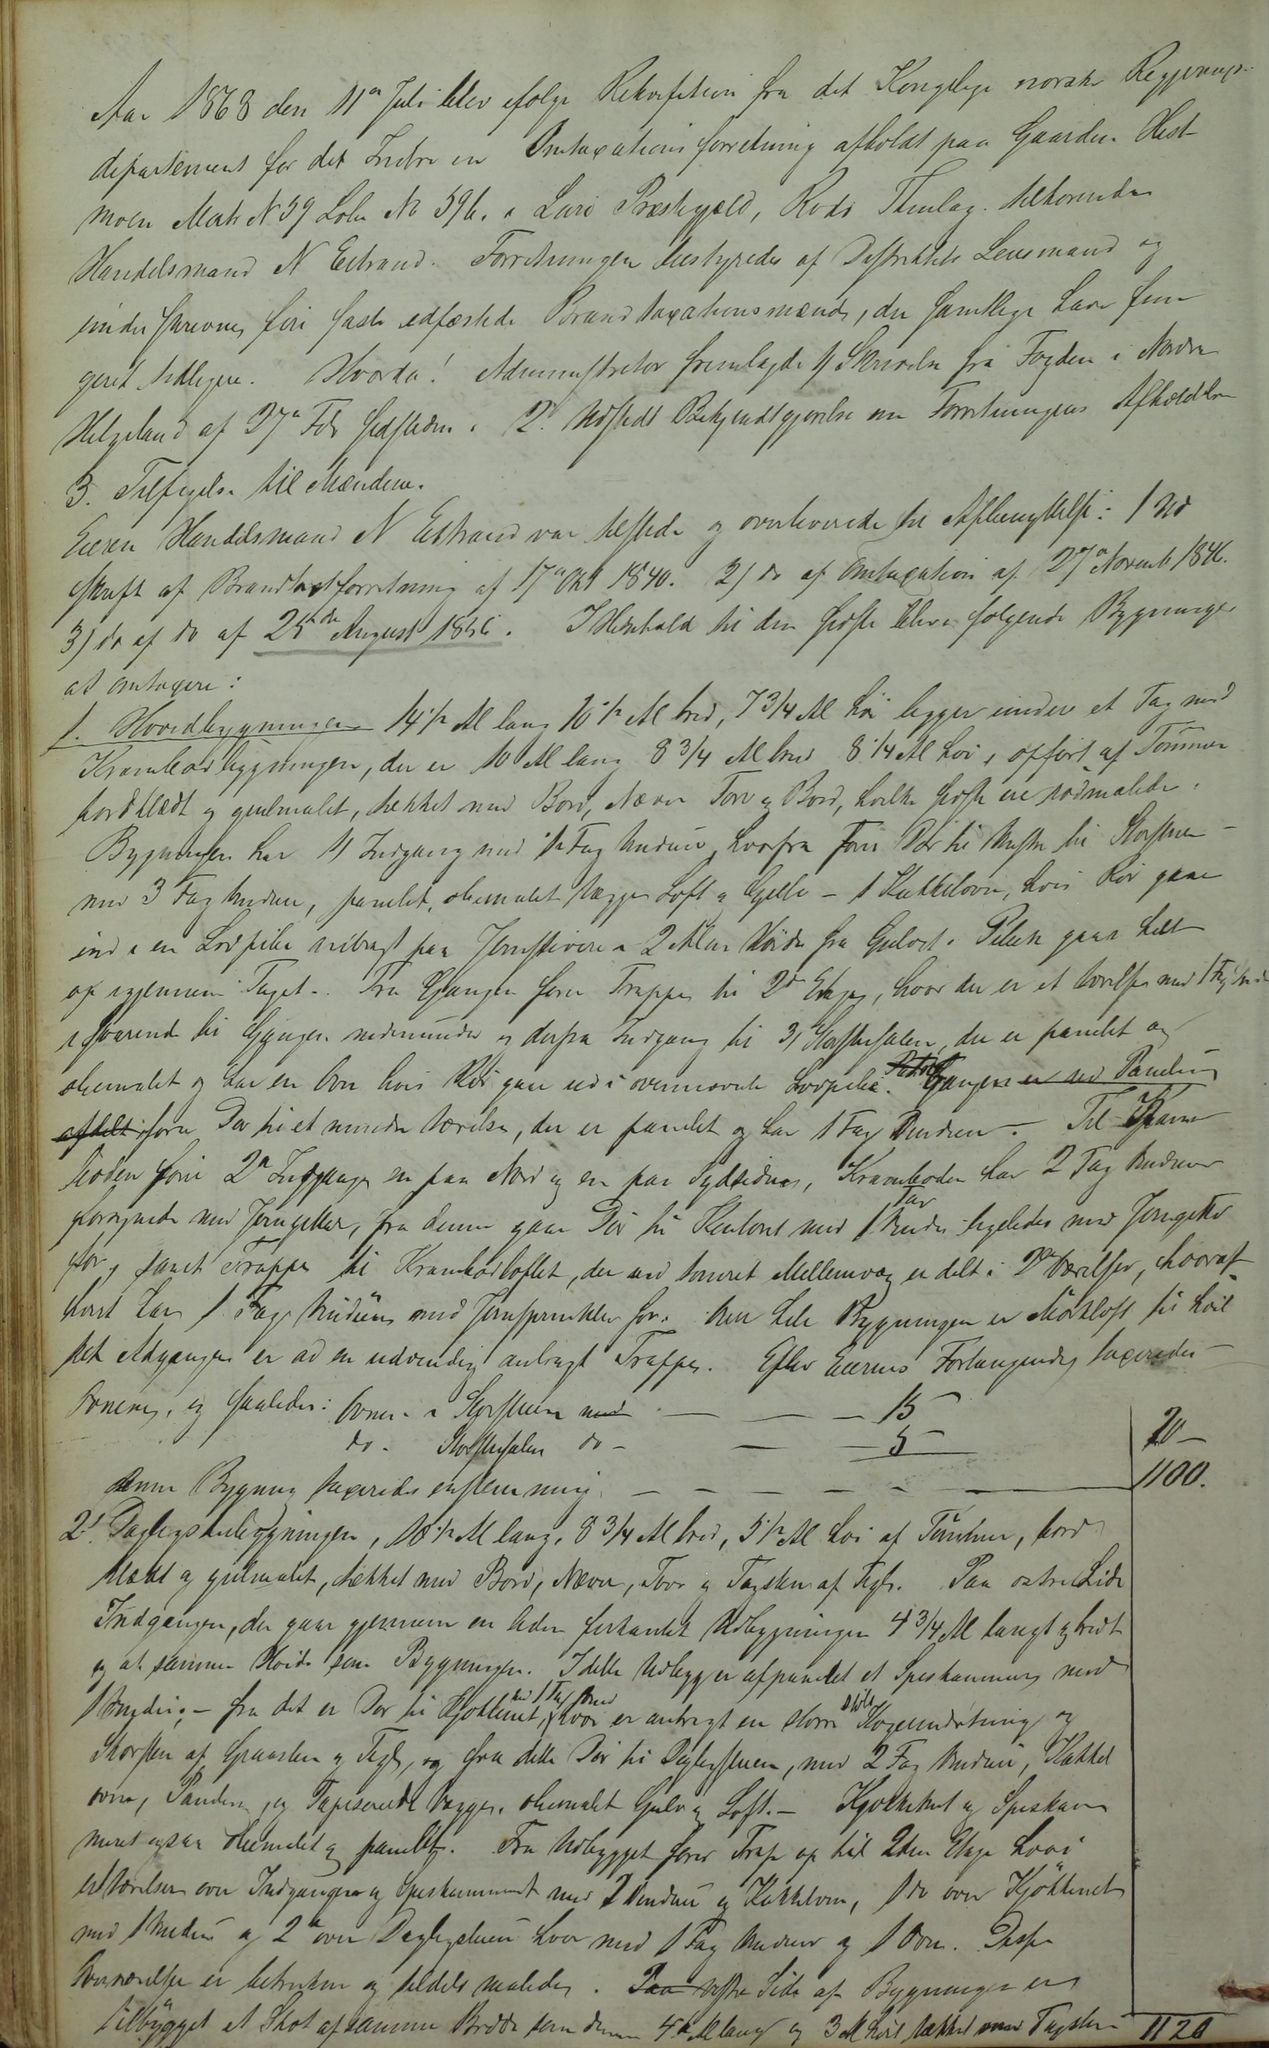 Aar 1868 den 11te Juli blev ifølge Rekvisition fra det Kongelige norske Regjerings-
departement for det Indre en Omtaxationsforretning afholdt paa Gaarden Hest-
moen Matr N 59 Løbe No 59b. i Lurø Præstegjæld, Rødø Thinlag tilhørende
Handelsmand N Estrand. Forretningen bestyredes af Distriktets Lensmand og
underskrevne fire faste edfæstede Brandtaxationsmænd, der samtlige have fun
geret tidligere. Hvorda! Administrator fremlagde 1 Skrivelse fra Fogden i Nordre
Helgeland af 27de Febr sidstleden. 2. Udstedt Bekjendtgjørelse om Forretningens Afholdelse
3. Tilsigelse til Mændene.
Eieren Handelsmand N Estrand var tilstede og overleverede til Afbenyttelse: 1 Ud
skrift af Brandtaxtforretning af 17de Okt 1840. 2) do af Omtaxation af 27de Novemb 1846.
3) do af do af 25de August 1856. I Henhold til den sidste bleve følgende Bygninger
at omtaxere:
1. Hovedbygningen 14 1/2 Al lang 10 1/2 Al bred, 7 3/4 Al høi ligger under et Tag med
Krambodbygningen, der er 10 Al lang 8 3/4 Al bred 8 1/4 Al høi, opført af Tømmer
bordklædt og guulmalet, tækket med Bord, Næver Torv og Bord, hvilke sidste ere rødmalede.
Bygningen har 1 Indgang med 1 Fag Vinduer, hvorfra fører Dør til til Storstuen -
med 3 Fag Vinduer, panelet, oliemalet Vægge Loft og Gulv - 1 Kakkelovn, hvis Rør gaar
ind i en Lodpibe anbragt paa Jernstivere i 2 Alens Høide fra Gulvet. Piben gaar helt
op igjennem Taget. Fra Gangen fører Trappe til 2den Etage, hvor der er et Værelse med 1 Fag Vindu
svarende til Gangen nedenunder og derfra Indgang til 3) Storstuesalen, der er panelet og
oliemalet og har en Ovn hvis Rør gaar ud i ovennævnte Lodpibe. Gangen er ved Paneling
afdelt fører Dør til et mindre Værelse, der er panelet og har 1 Fag Vinduer. Til Kram
boden fører 2de Indgange en paa Nord og en paa Sydsiden, Kramboden har 2 Fag Vinduer
forsynede med Jerngitter, fra denne gaar Dør til Kontoret med 1 Fag Vindue ligeledes med Jerngitter
for, samt Trappe til Krambodloftet, der ved tømret Mellemvæg er delt i 2de Værelser, hvoraf
hvert har 1 Fag Vinduer med Jernsprinkler for. Over hele Bygningen er Mørkloft til hvil
ket Adgangen er ad en udvendig anbragt Trappe. Efter Eierens Forlangende taxeredes
Ovnene, og saaledes: Ovnen i Storstuen med - - - 15
do. Storstuesalen do - - - 5 20 -
Denne Bygning taxeredes enstemmig - - - - - 1100.
2. Dagligstuebygningen, 10 1/2 Al lang, 8 3/4 Al bred, 5 1/2 Al høi af Tømmer, bord
klædt og guulmalet, tækket med Bord, Næver, Torv og Tagsten af Tegl. Paa østre Side
Indgangen, der gaar gjennem en liden firkantet Udbygningen 4 3/4 Al langt og bredt
og af samme Høide som Bygningen. I dette Udbygg er afpanelet et Speskammer med
1 Vindu, - fra det er Dør til Kjøkkenet, med 1 Fag Vind hvor er anbragt en større Kogeindretning og
Skorsten af Graasten og Tegl, og fra dette Dør til Dagligstuen, med 2 Fag Vinduer, Kakkel
ovn, Panelen og Tapetserede Vægge, oliemalet Gulv og Loft. - Kjøkkenet og Speskam
meret ogsaa oliemalet og panelet. Fra Udbygget fører Trap op til 2den Etage hvor i
et Værelser over Indgangen og Speskammeret med 2 Vinduer og Kakkelovn, 1 do over Kjøkkenet
med 1 Vindu og 2de over Dagligstuen hver med 1 Fag Vinduer og 1 Ovn. Disse
Værelser er betrukne og tildels malede. Paa vestre Side af Bygningen er
tilbygget et Skot af samme Bredde som denne 4 Al lang og 3 Al høit tækket med Tagsten 1120